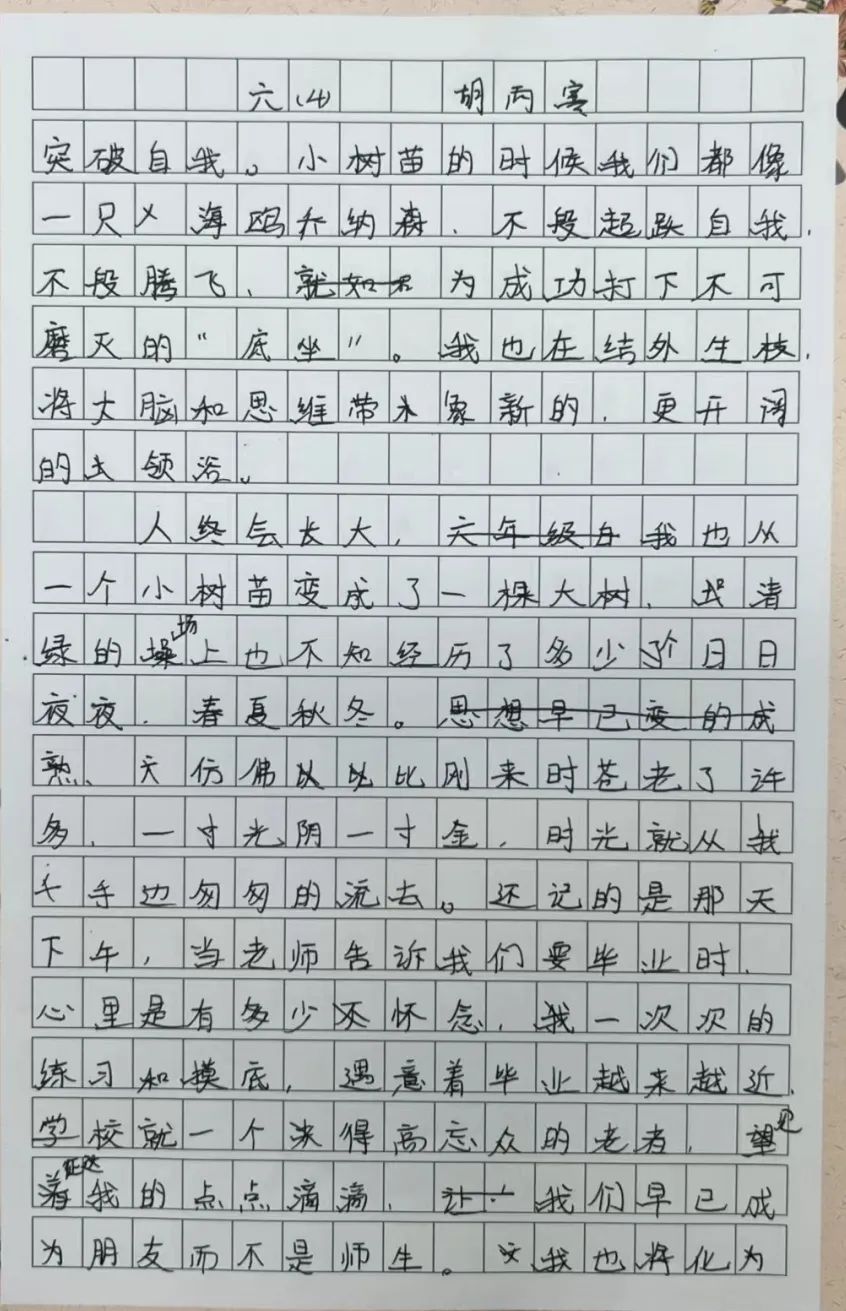 六(4) 胡丙寒
突破自我。小树苗的时候我们都像
一只海鸥乔纳森，不段超跃自我，
不段腾飞，就如 为成功打下不可
磨灭的“底坐”。我也在结外生枝，
将大脑和思维带 象新的，更开阔
的去领浴。
人终会长大，六年级 我也从
一个小树苗变成了一棵大树，清
绿的操场上也不知经历了多少个日日
夜夜，春夏秋冬。思想早已变的成
熟、天仿佛以比刚来时苍老了许
多，一寸光阴一寸金，时光就从我
手边匆匆的流去。还记的是那天
下午，当老师告诉我们要毕业时，
心里是有多少不怀念，我一次次的
练习和摸底，遇意着毕业越来越近，
学校就一个 得高 众的老者，望
着我的点点滴滴，让 我们早已成
为朋友而不是师生。我也将化为